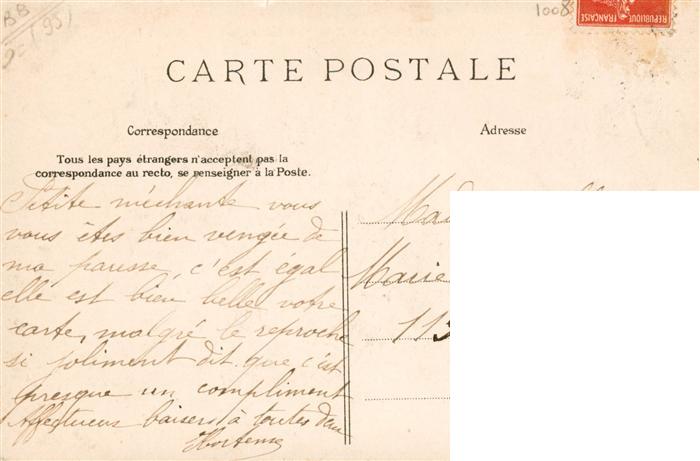 BB
(95)
1008
REPUBLIQUE
FRANÇAISE
CARTE POSTALE
Correspondance
Adresse
Tous les pays étrangers n'acceptent pas la
correspondance au recto, se renseigner à la Poste.
Petite méchante vous
vous êtes bien vengée de
ma paresse, c'est égal
elle est bien belle votre
carte, malgré le reproche
si joliment dit que c'est
presque un compliment
Affectueux baisers à toutes deux
Hortense
Marie
113